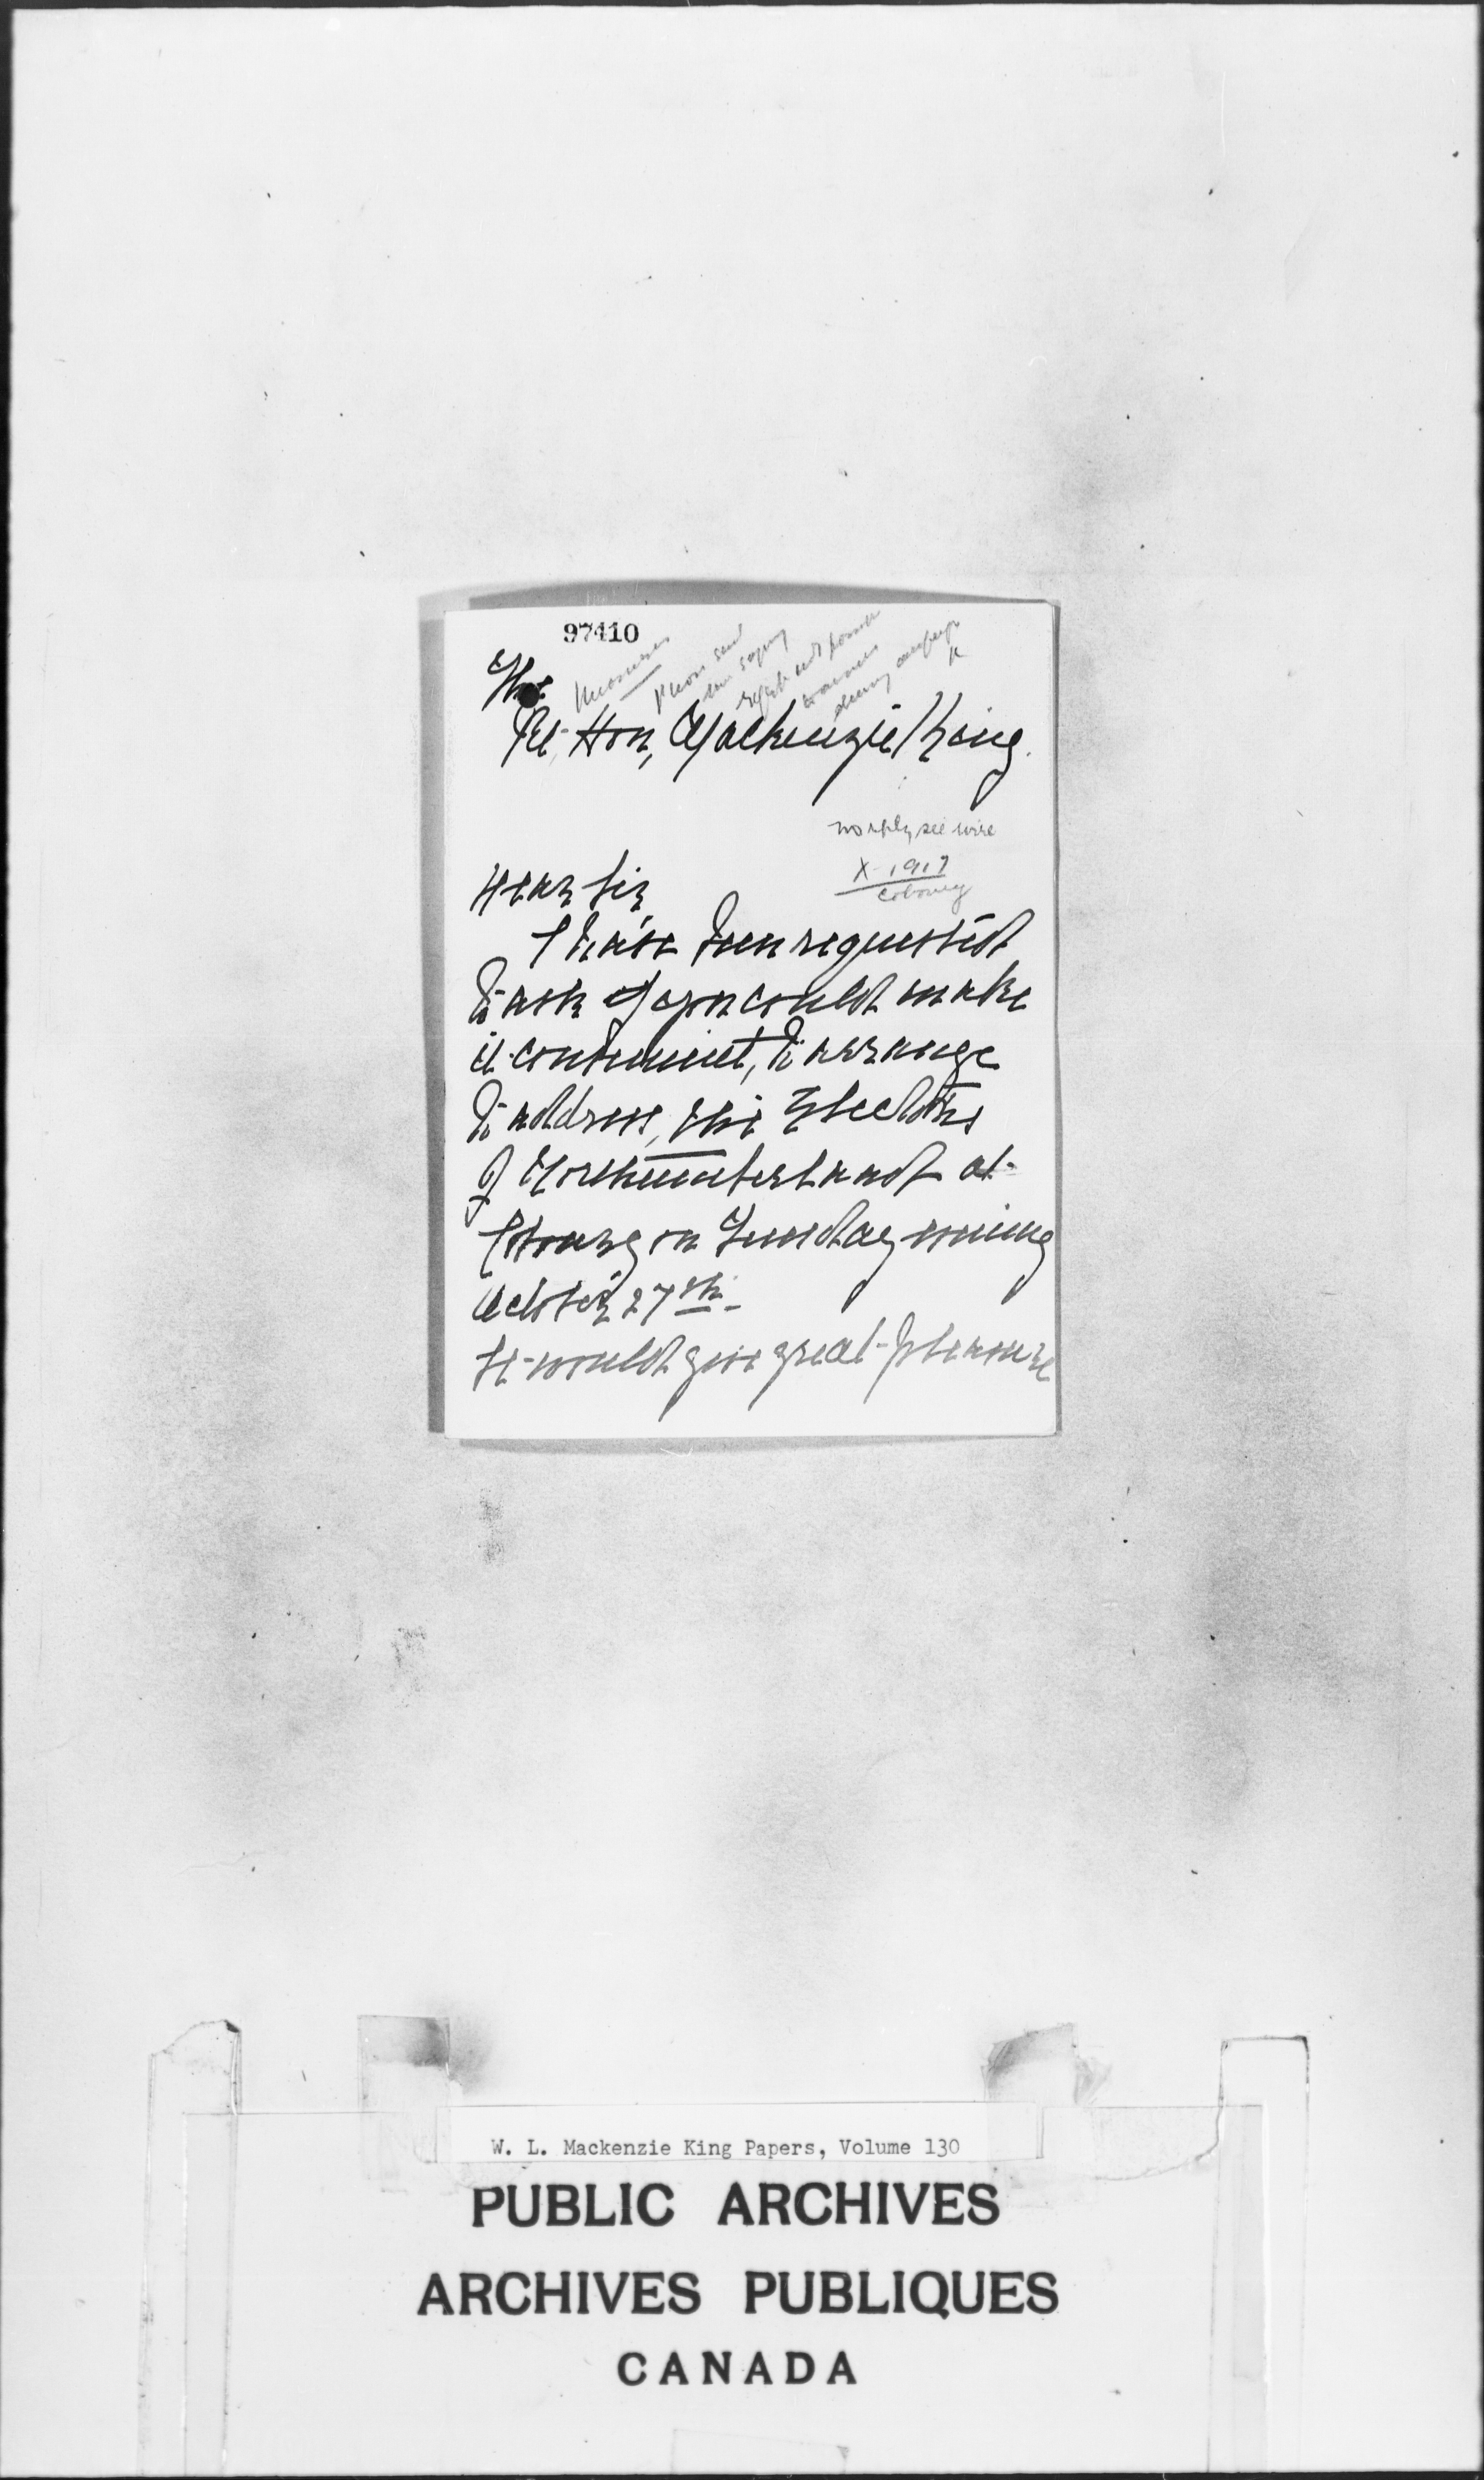 97410
please send
wire saying
regret not possible
during campaign
K
The
Rt. Hon, Mackenzie King.
no reply, see wire
X-1917
Cobourg
Dear Sir
I have been requested
to ask if you could make
it convenient, to arrange
to address, the Electors
of Northumberland at
Cobourg on Tuesday evening
October 27th
It would give great pleasure
W. L. Mackenzie King Papers, Volume 130
PUBLIC ARCHIVES
ARCHIVES PUBLIQUES
CANADA